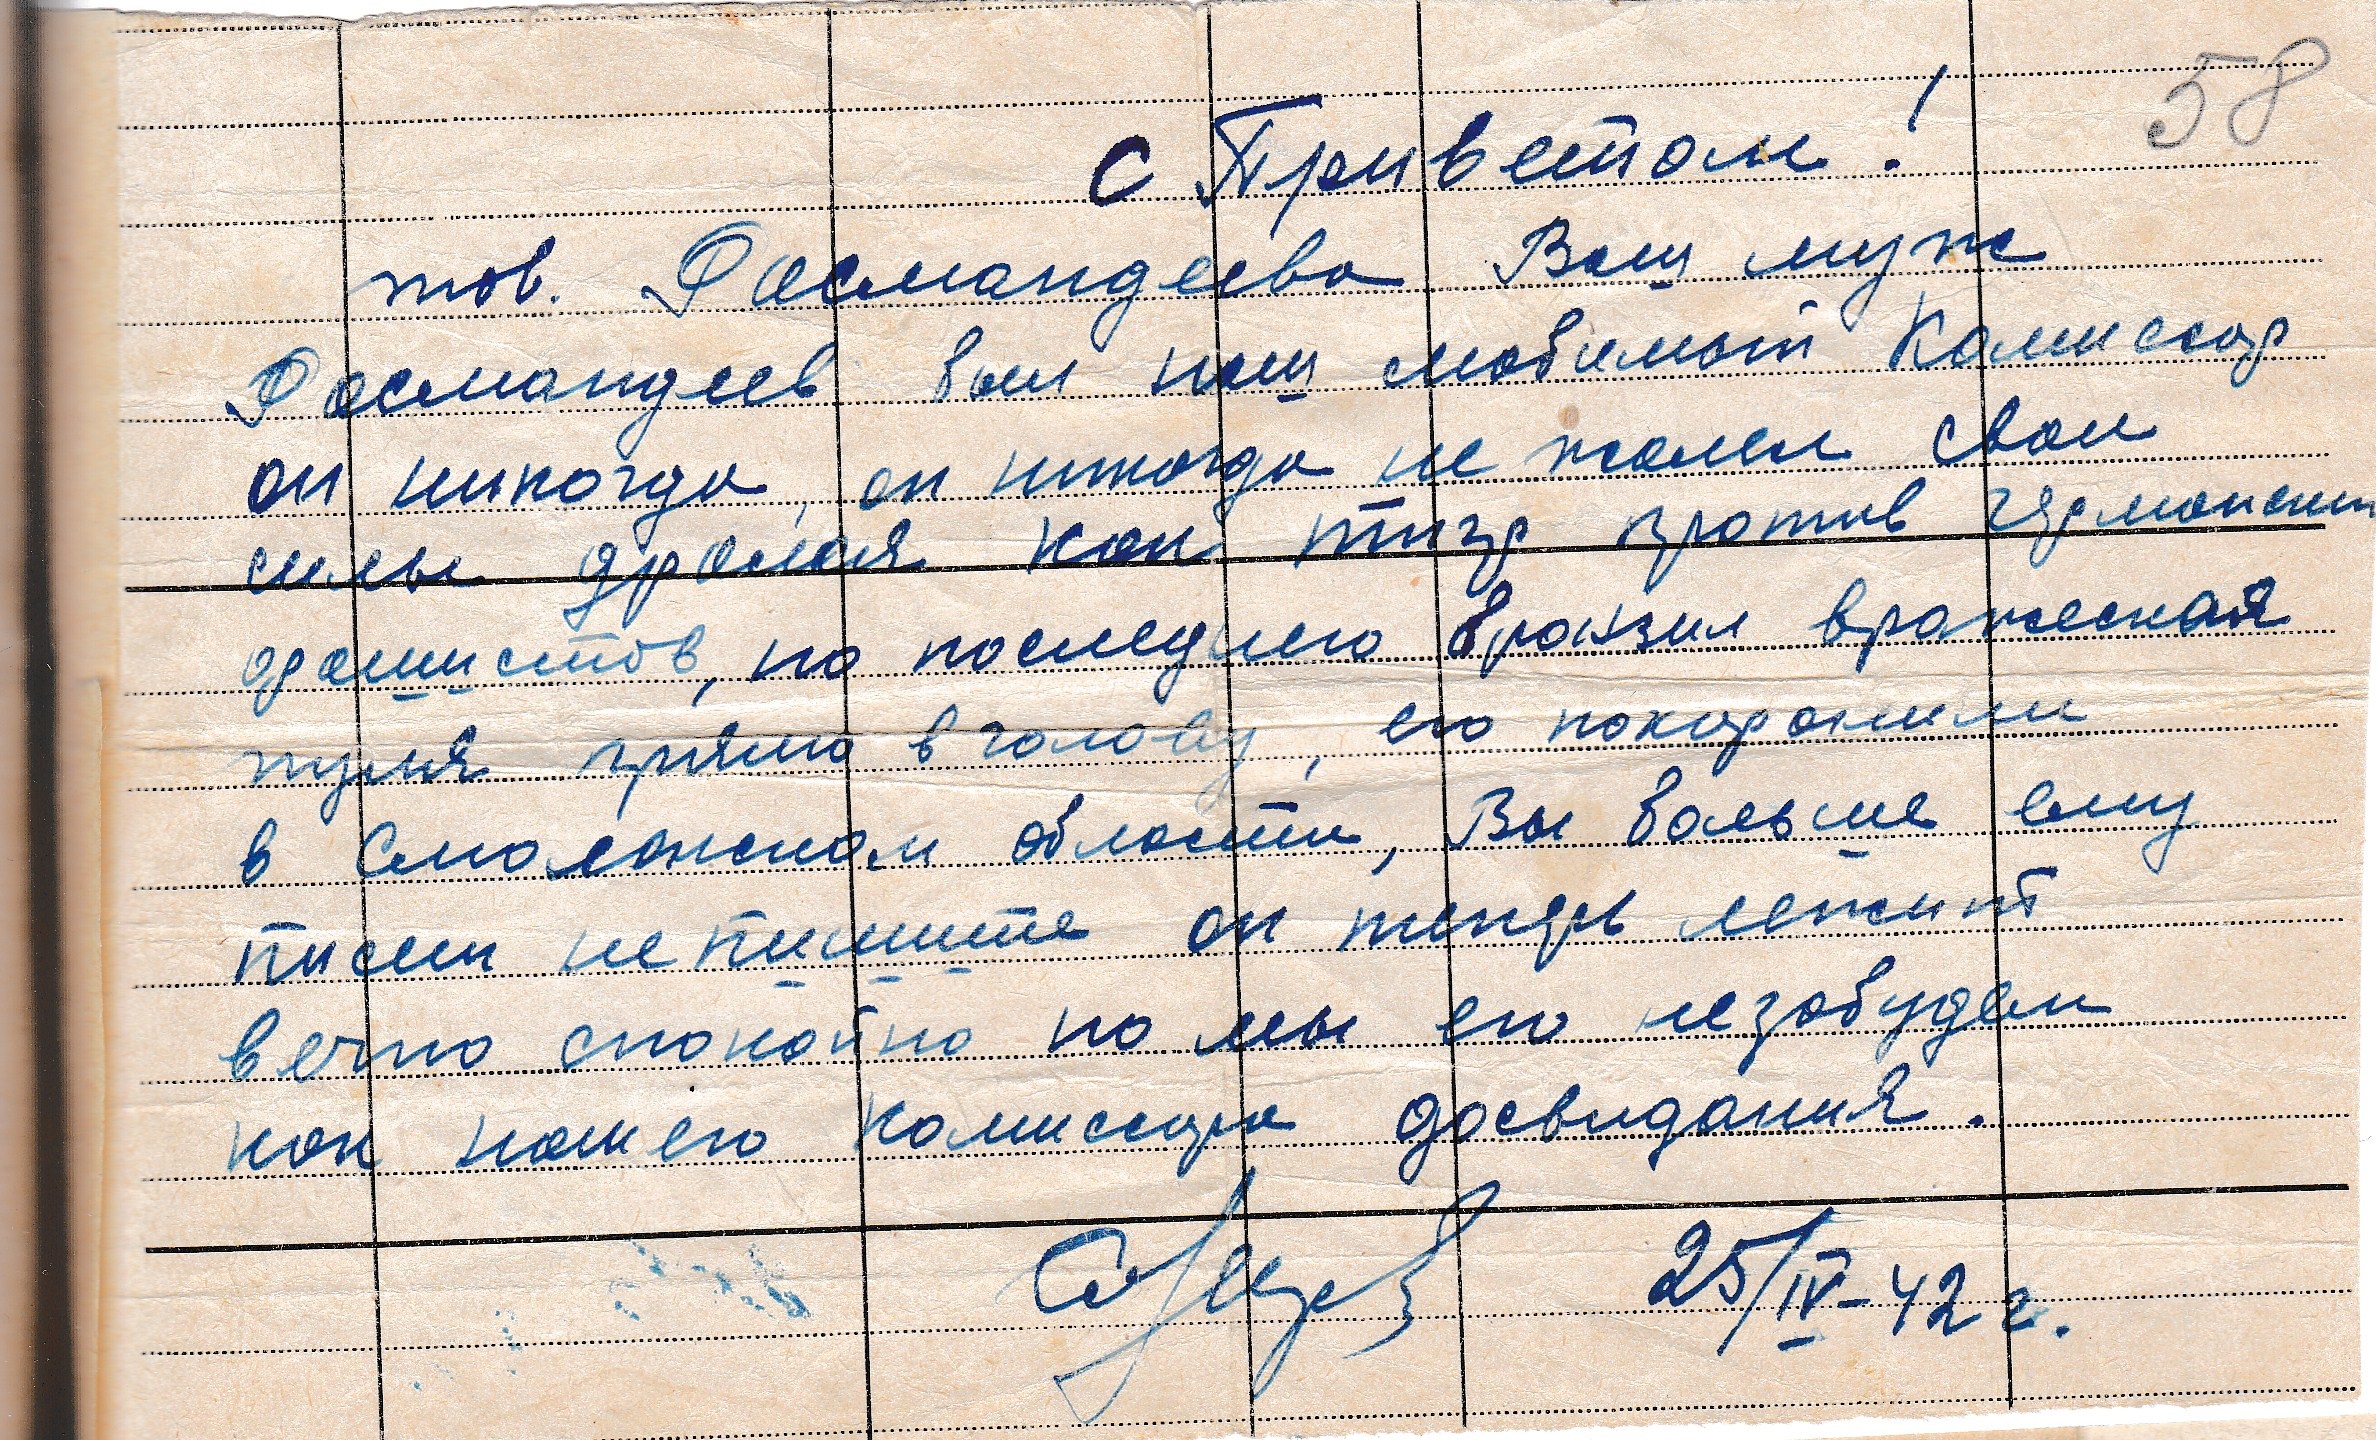 58
С Приветом!
тов. Росмандеева Ваш муж
Росмандеев был наш любимый Комиссар
он никогда, он никогда не жалел свои
силы дрался как тигр против германски
фашистов, но последнего вранзил вражеская
пуля прямо в голову, его покаронили
в Смоленском области, Вы больше ему
писем не пишите он типерь лежит
вечно спокойно но мы его незабудем
как нашего комиссара досвидания.
25/IV-42 г.